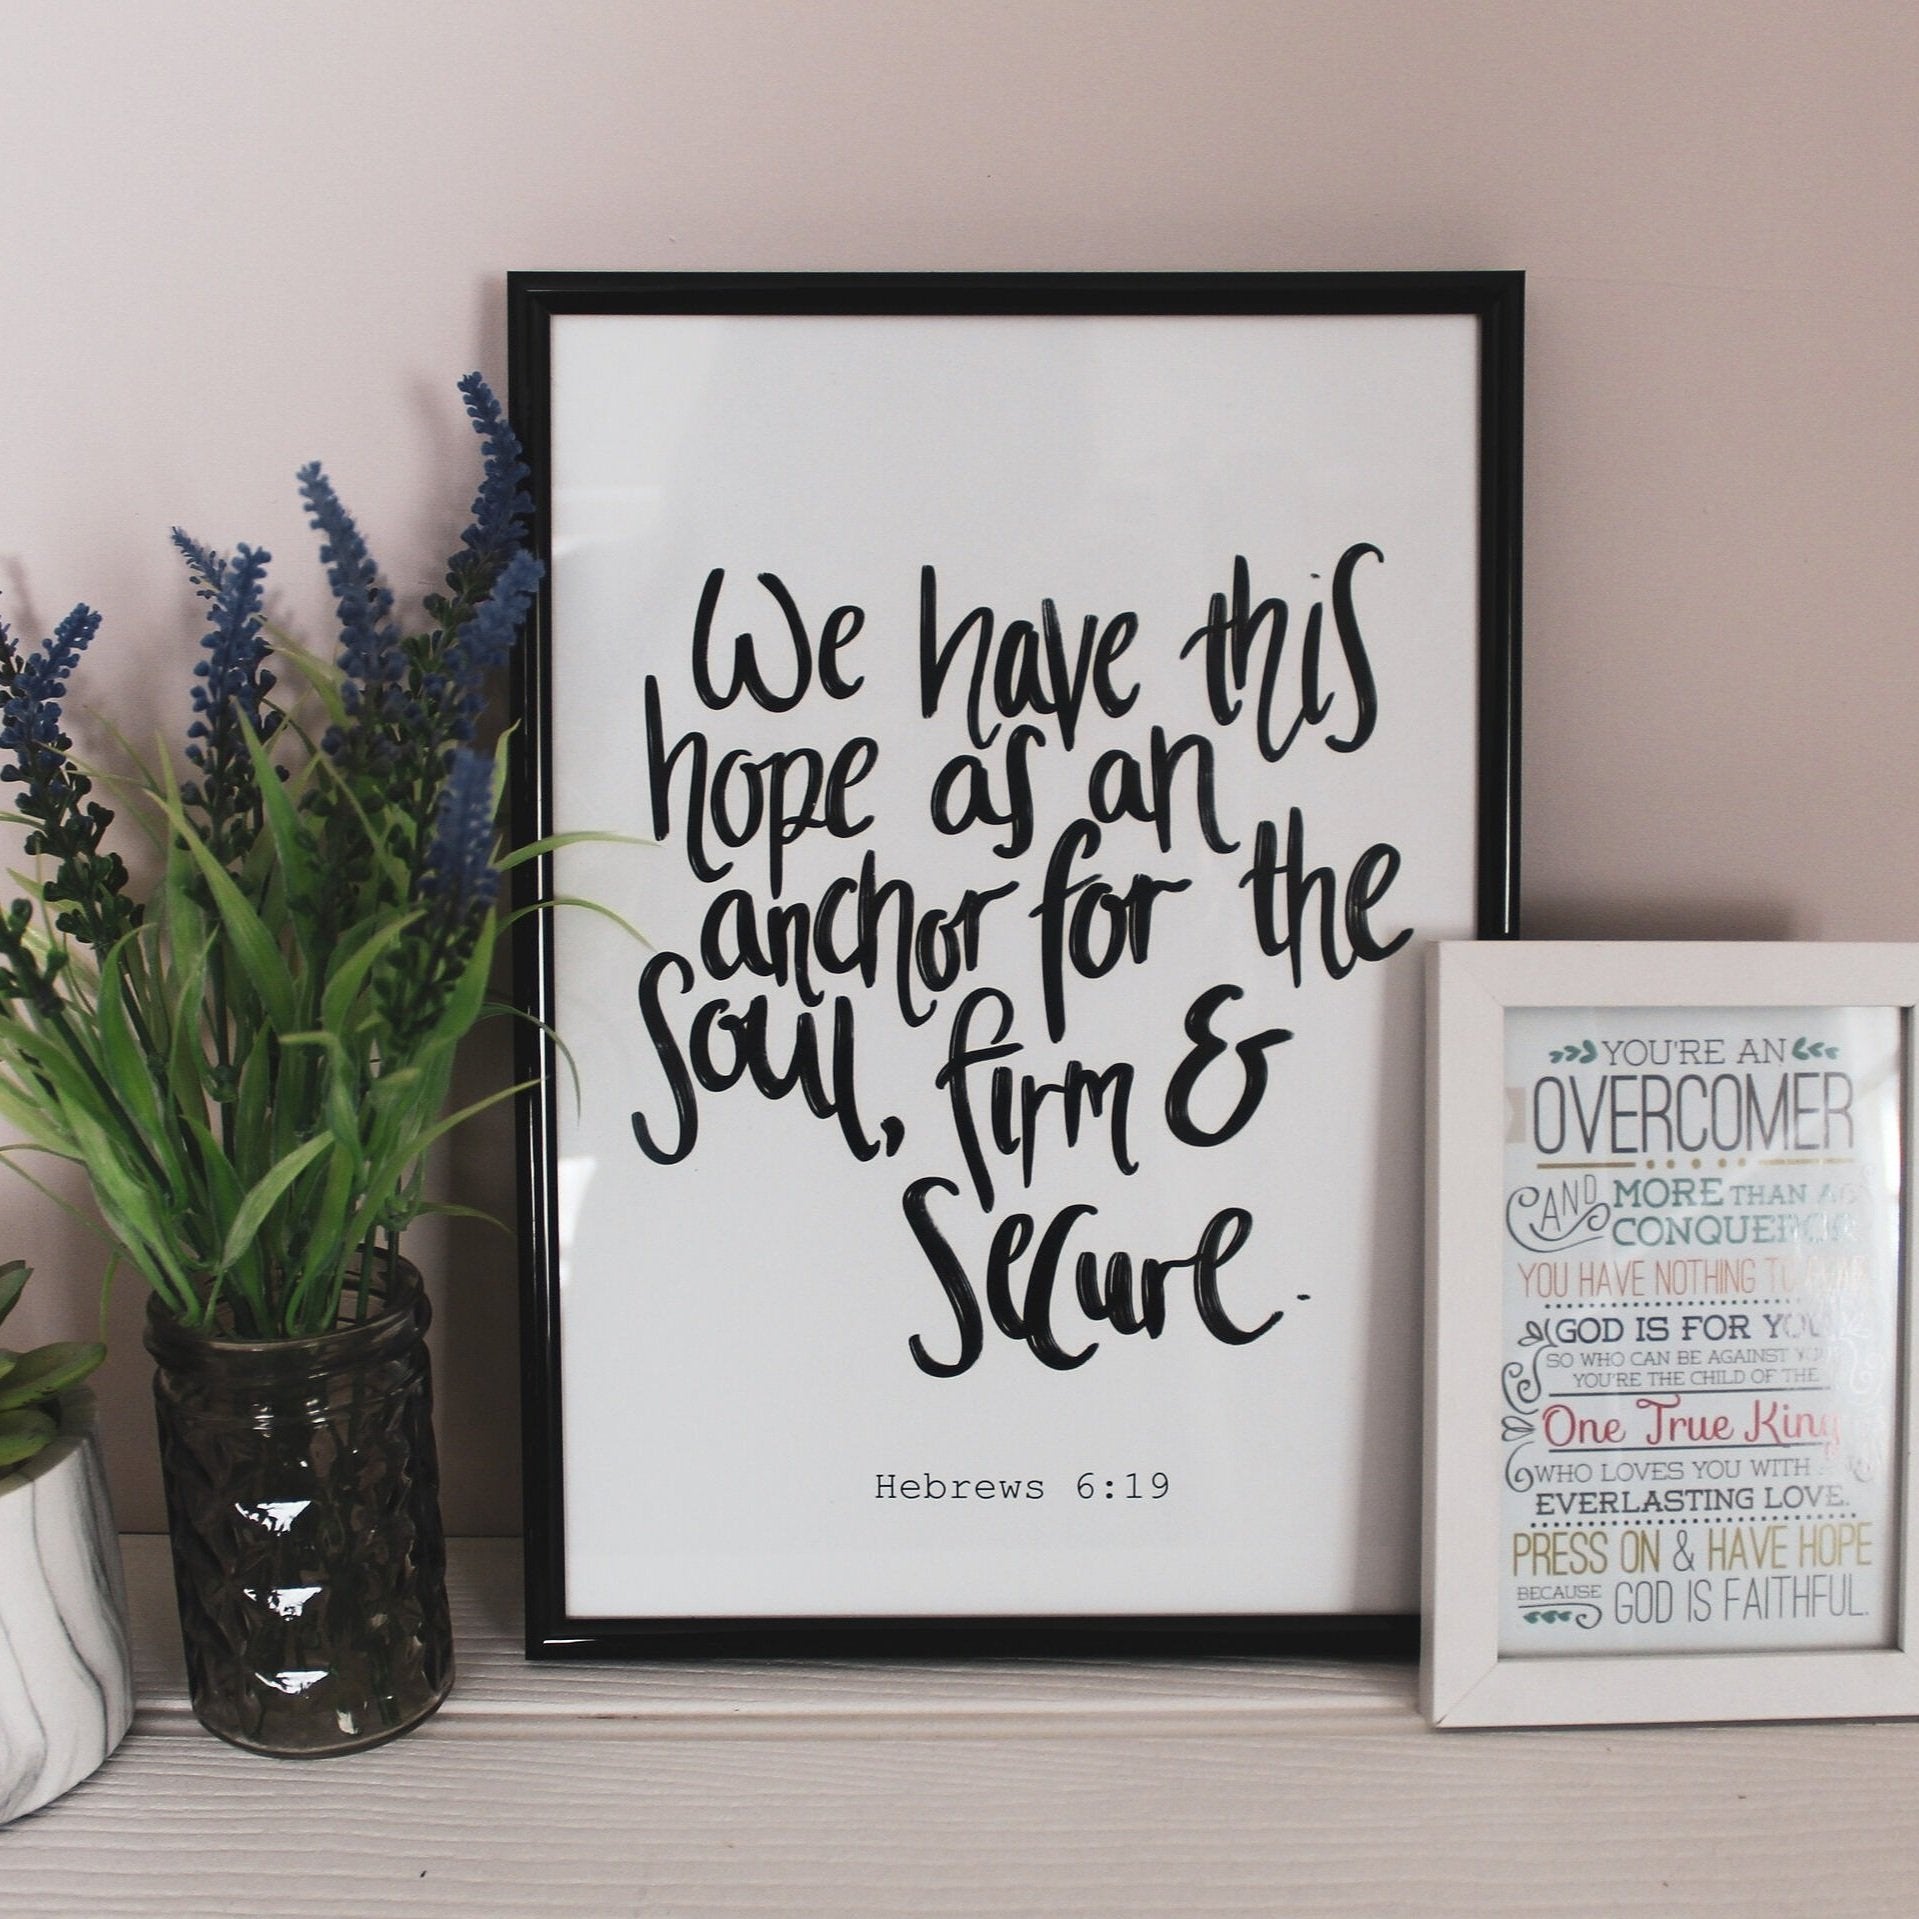 We have this
hope as an
anchor for the
Soul, firm &
Secure.
Hebrews 6:19
YOU'RE AN
OVERCOMER
AND MORE THAN A
CONQUEROR
YOU HAVE NOTHING TO
GOD IS FOR YOU
SO WHO CAN BE AGAINST YOU
YOU'RE THE CHILD OF THE
One True King
WHO LOVES YOU WITH
EVERLASTING LOVE.
PRESS ON & HAVE HOPE
BECAUSE GOD IS FAITHFUL.